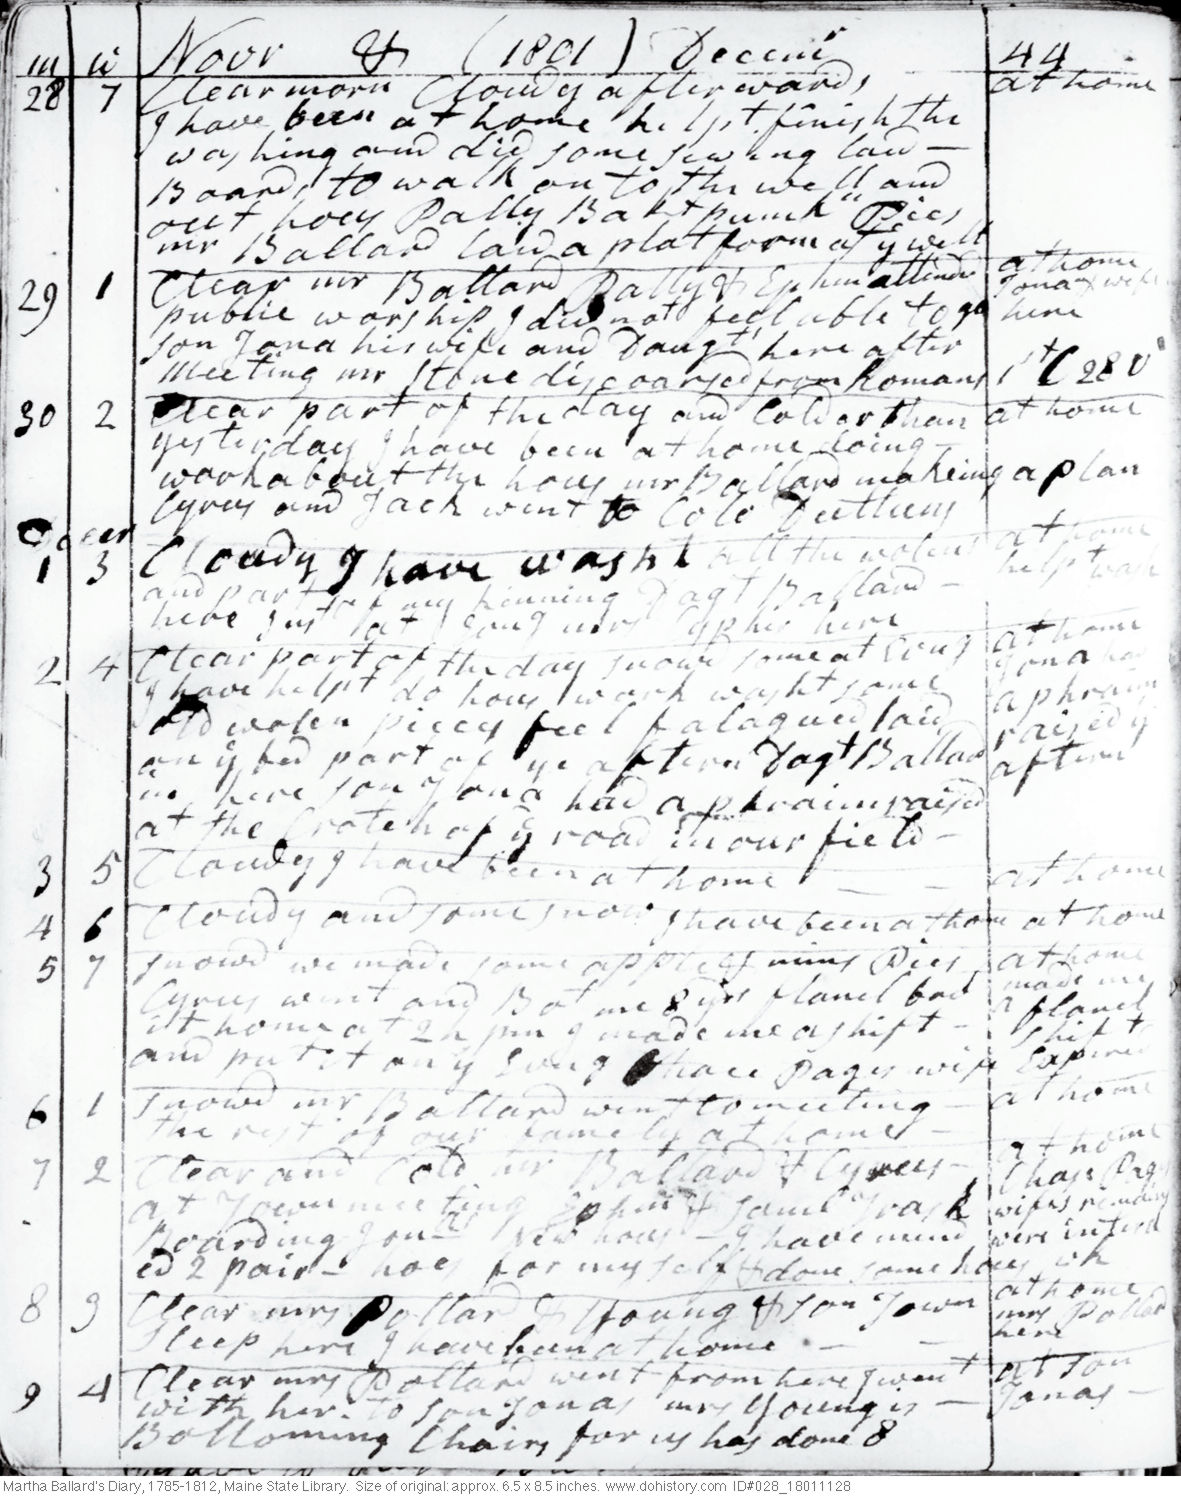 m w Novr & (1801) Decemr 44
28 7 Clear morn Cloudy afterwards at home
I have been at home helpt finish the
washing and did some sewing laid
Boards to walk on to the well and
out hous Dolly Bakt pumkn Pies
mr Ballard laid a platform at ye well
29 1 Clear mr Ballard Dolly & Ephm attend at home
public worship I did not feel able to go Jonas & wife here
son Jona his wife and Daugt here after
Meeting mr Stone discoarsed from Romans 1st C 28 V
30 2 Clear part of the day and Colder than at home
yesterday I have been at home doing
work about the hous mr Ballard makeing a plan
Cyrus and Jack went to Colo
Decer
1 3 Cloudy I have washt all the wolens at home
and part of my linning Dagt Ballard helpt wash
here mrs here
2 4 Clear part of the day snowd some at Evng at home
I have helpt do hous work washt some Jona had
old wolen pieces feel fatagued laid a phraim
on ye bed part of ye aftern Dagt Ballard raised ye
in here son Jona had a phraim raised aftern
at the Crotch of ye road in our field
3 5 Cloudy I have been at home at home
4 6 Cloudy and some snow I have been at home at home
5 7 snowd we made some apple & mins Pies at home
Cyrus went and Bot me 8 yds flanel had made me
it home at 2 h pm I made me a shift a flanel
and put it on ye Evng Chace Pages wife Expired shift
6 1 snowd mr Ballard went to meeting at home
the rest of our famely at home
7 2 Clear and Cold mr Ballard & Cyrus at home
at Town meeting Ephm & Saml Trask Chas Pages
Boarding Jonas New hous I have mend wifes remains
ed 2 pair hoes for myself & done some hous wk were interd
8 3 Clear mrs Pollard & Young & son Town at home
sleep here I have been at home mrs Pollard here
9 4 Clear mrs Pollard went from here I went at son
with her to son Jonas mrs Young is Jonas
Bottoming Chairs for us has done 8
Martha Ballard's Diary, 1785-1812, Maine State Library. Size of original: approx. 6.5 x 8.5 inches. www.dohistory.com ID#028_18011128